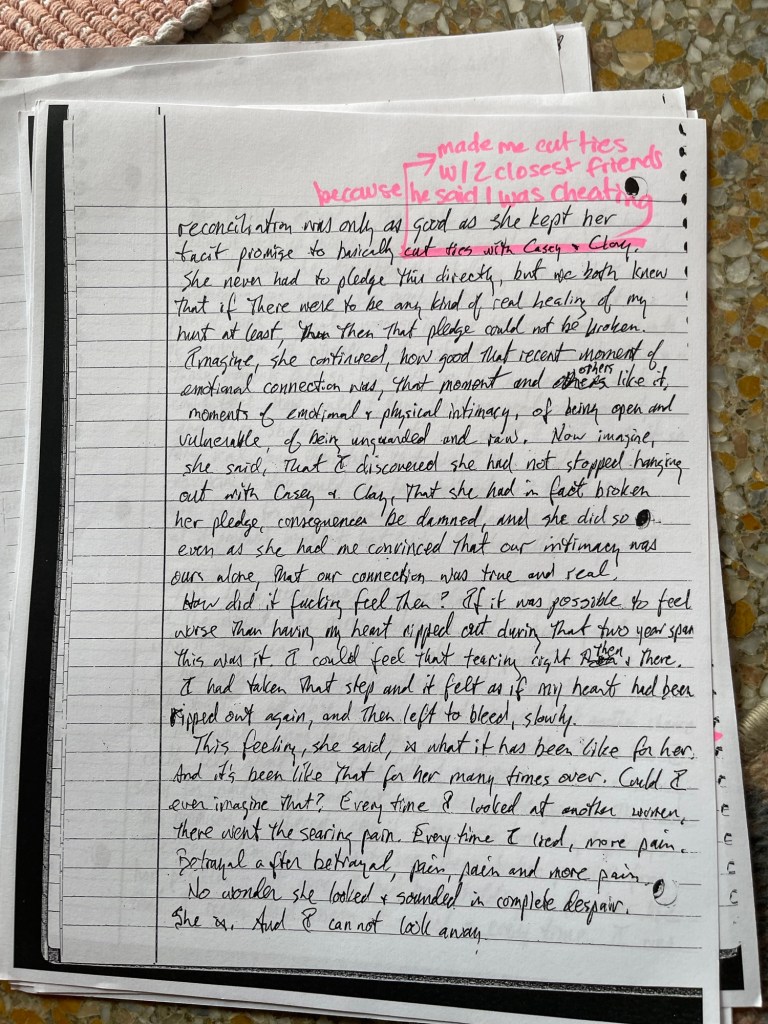 made me cut ties
w/ 2 closest friends
because he said I was cheating
reconciliation was only as good as she kept her
tacit promise to basically cut ties with Casey & Clay.
She never had to pledge this directly, but we both knew
that if there were to be any kind of real healing of my
hurt at least, then then that pledge could not be broken.
Imagine, she continued, how good that recent moment of
emotional connection was, that moment and others others like it,
moments of emotional & physical intimacy, of being open and
vulnerable, of being unguarded and raw. Now imagine,
she said, that I discovered she had not stopped hanging
out with Casey & Clay, that she had in fact broken
her pledge, consequences be damned, and she did so
even as she had me convinced that our intimacy was
ours alone, that our connection was true and real.
How did it fucking feel then? If it was possible to feel
worse than having my heart ripped out during that two year span
this was it. I could feel that tearing right then & there.
I had taken that step and it felt as if my heart had been
ripped out again, and then left to bleed, slowly.
This feeling, she said, is what it has been like for her.
And it's been like that for her many times over. Could I
even imagine that? Every time I looked at another women,
there went the searing pain. Every time I lied, more pain.
Betrayal after betrayal, pain, pain and more pain.
No wonder she looked & sounded in complete despair.
She is. And I can not look away